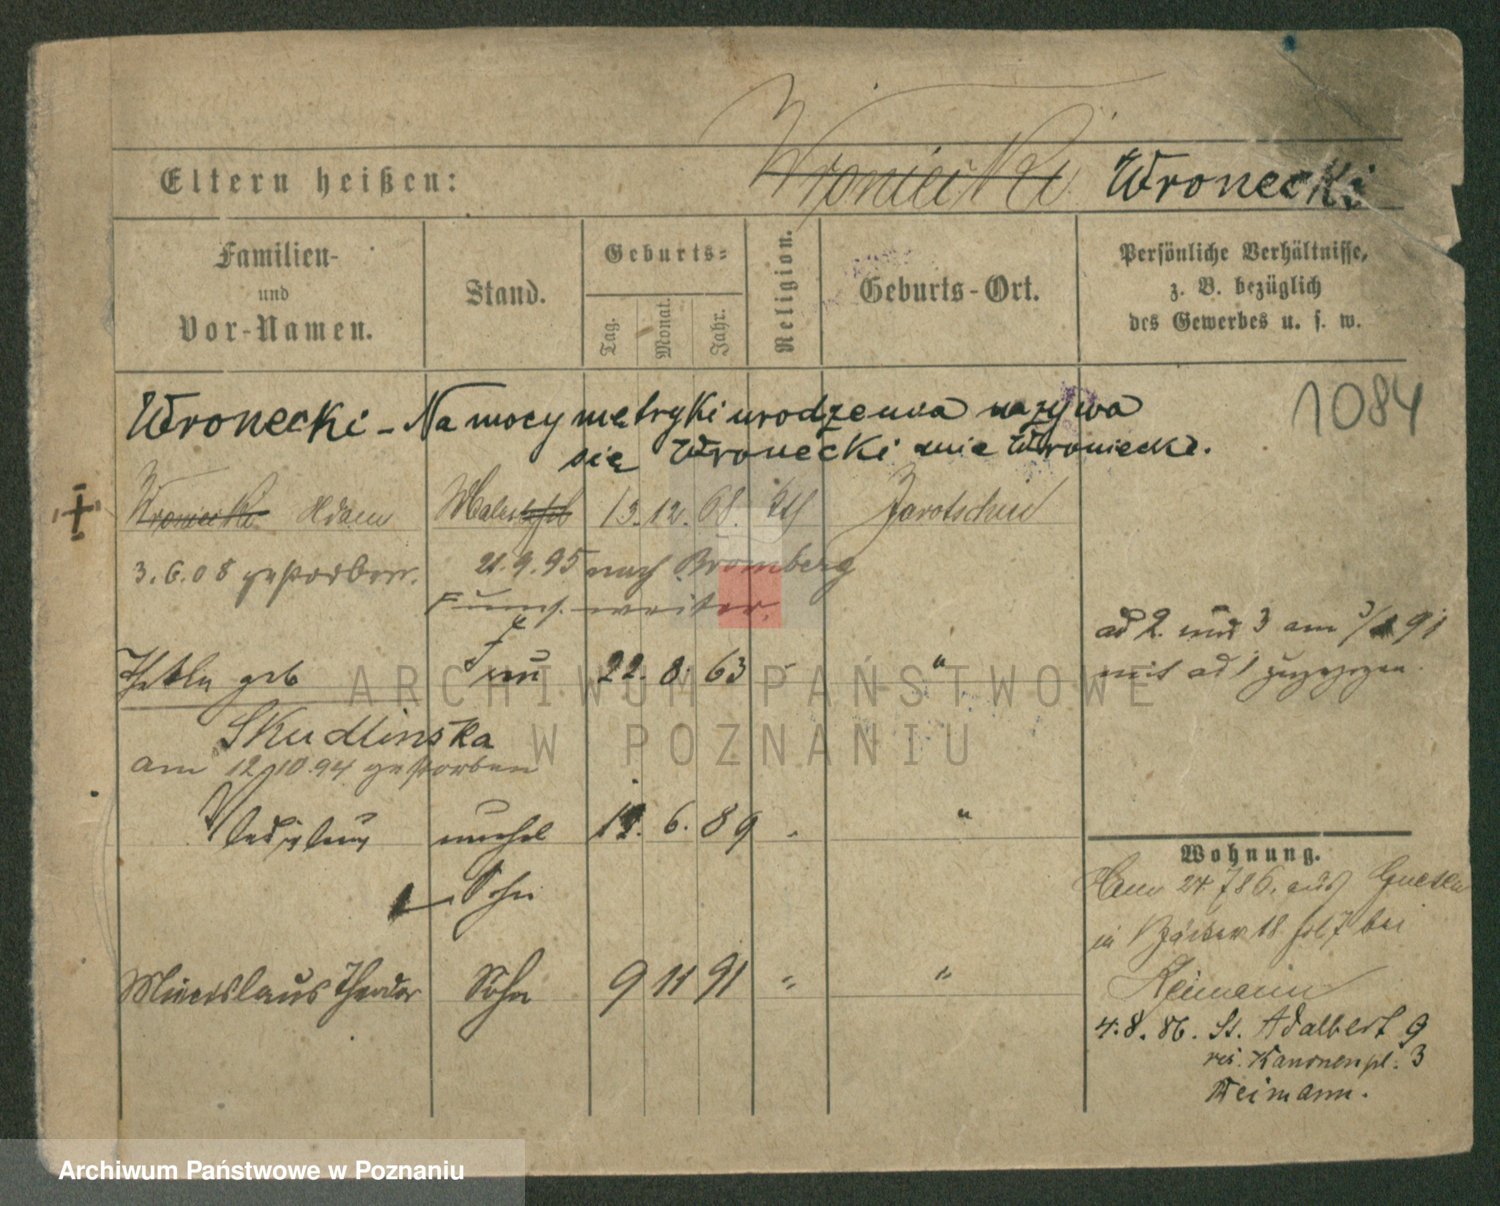 Eltern heißen: Wroniecki Wronecki
Familien- und Vor-Namen.
Stand.
Geburts-
Tag.
Monat.
Jahr.
Religion.
Geburts-Ort.
Persönliche Verhältnisse,
z. B. bezüglich
des Gewerbes u. s. w.
1084
Wronecki - Na mocy metryki urodzenia nazywa
się Wronecki a nie Wroniecki.
Wroniecki Adam Maler 13. 12. 68. kth Jarotschin
3.6.08 gestorben. 21.9.95 nach Bromberg
weiter.
ad 2. und 3 am 91
mit ad 1 zugezogen.
Thekla geb Frau 22. 8. 63 " "
Skudlinska
am 12.10.94 gestorben
Vladislaus unehel 6. 89 " "
Sohn
Wohnung.
aus Gnesen
18 bei
Mieceslaus Theodor Sohn 9 11 91 " "
Reimann
4.8.86. St. Adalbert 9
Kanonenpl. 3
Reimann.
ARCHIWUM PAŃSTWOWE
W POZNANIU
Archiwum Państwowe w Poznaniu